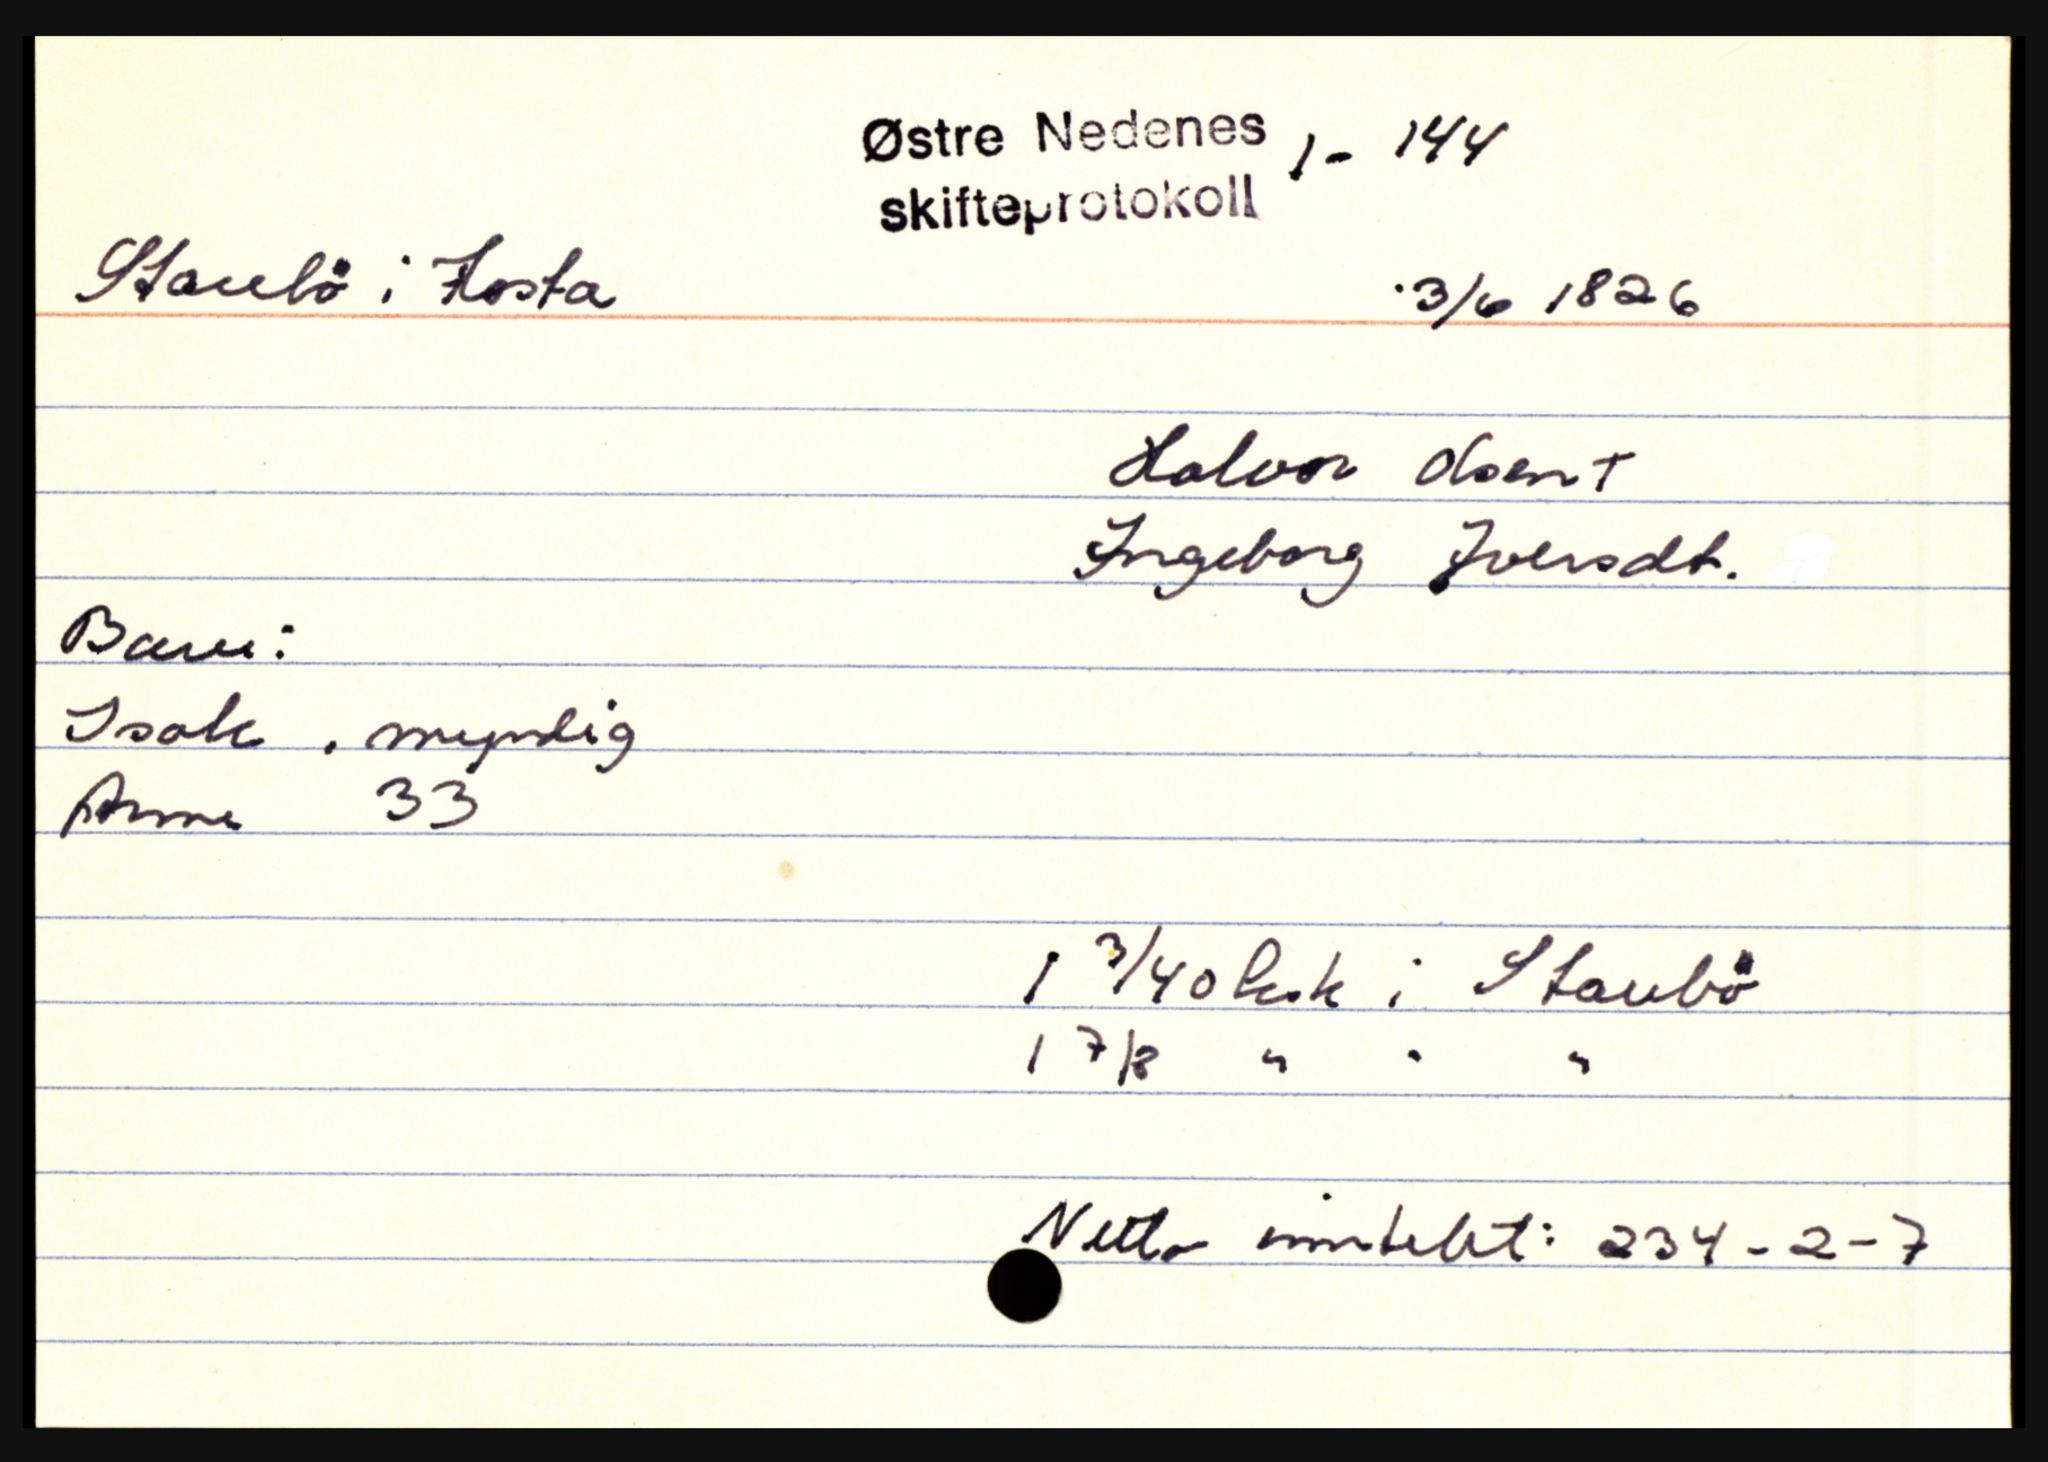 Østre Nedenes 1 - 144
skifteprotokoll
Staubö i Hosta 3/6 1826
Halvor Olsen †
Ingeborg Iversdt.
Barn:
Isak , myndig
Anne 33
1 3/40 ksk i Staubö
1 7/8 " " "
Netto inntekt: 234 - 2 - 7